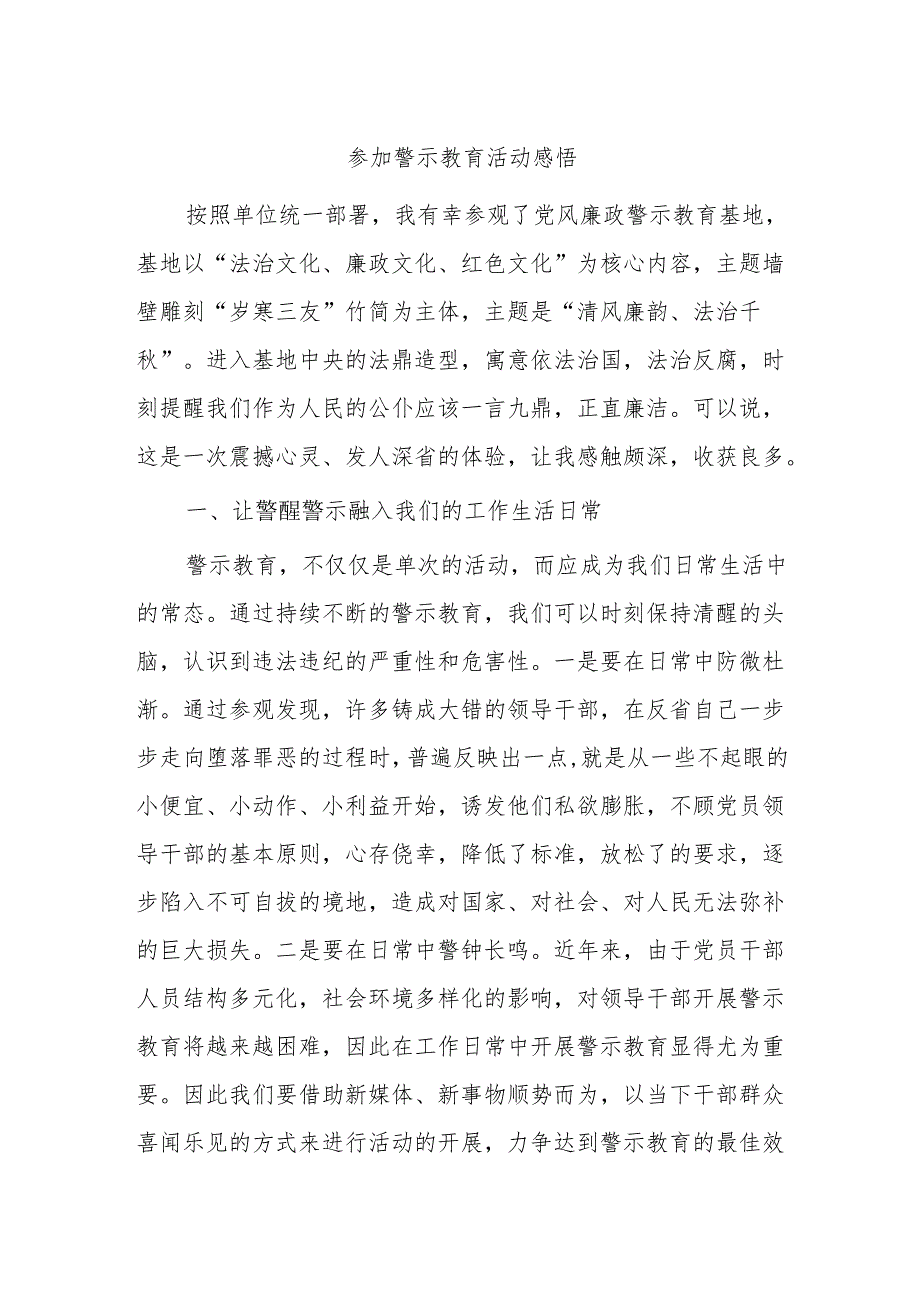 参加警示教育活动感悟
按照单位统一部署，我有幸参观了党风廉政警示教育基地，
基地以“法治文化、廉政文化、红色文化”为核心内容，主题墙
壁雕刻“岁寒三友”竹简为主体，主题是“清风廉韵、法治千
秋”。进入基地中央的法鼎造型，寓意依法治国，法治反腐，时
刻提醒我们作为人民的公仆应该一言九鼎，正直廉洁。可以说，
这是一次震撼心灵、发人深省的体验，让我感触颇深，收获良多。
一、让警醒警示融入我们的工作生活日常
警示教育，不仅仅是单次的活动，而应成为我们日常生活中
的常态。通过持续不断的警示教育，我们可以时刻保持清醒的头
脑，认识到违法违纪的严重性和危害性。一是要在日常中防微杜
渐。通过参观发现，许多铸成大错的领导干部，在反省自己一步
步走向堕落罪恶的过程时，普遍反映出一点,就是从一些不起眼的
小便宜、小动作、小利益开始，诱发他们私欲膨胀，不顾党员领
导干部的基本原则，心存侥幸，降低了标准，放松了的要求，逐
步陷入不可自拔的境地，造成对国家、对社会、对人民无法弥补
的巨大损失。二是要在日常中警钟长鸣。近年来，由于党员干部
人员结构多元化，社会环境多样化的影响，对领导干部开展警示
教育将越来越困难，因此在工作日常中开展警示教育显得尤为重
要。因此我们要借助新媒体、新事物顺势而为，以当下干部群众
喜闻乐见的方式来进行活动的开展，力争达到警示教育的最佳效